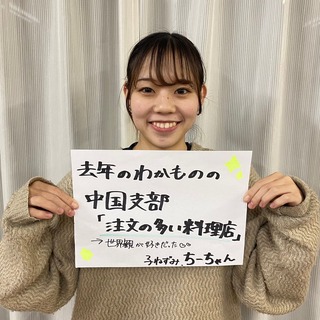 去年のわかものの
中国支部
「注文の多い料理店」
→世界観が好きだった♡♡
子ねずみ、ちーちゃん